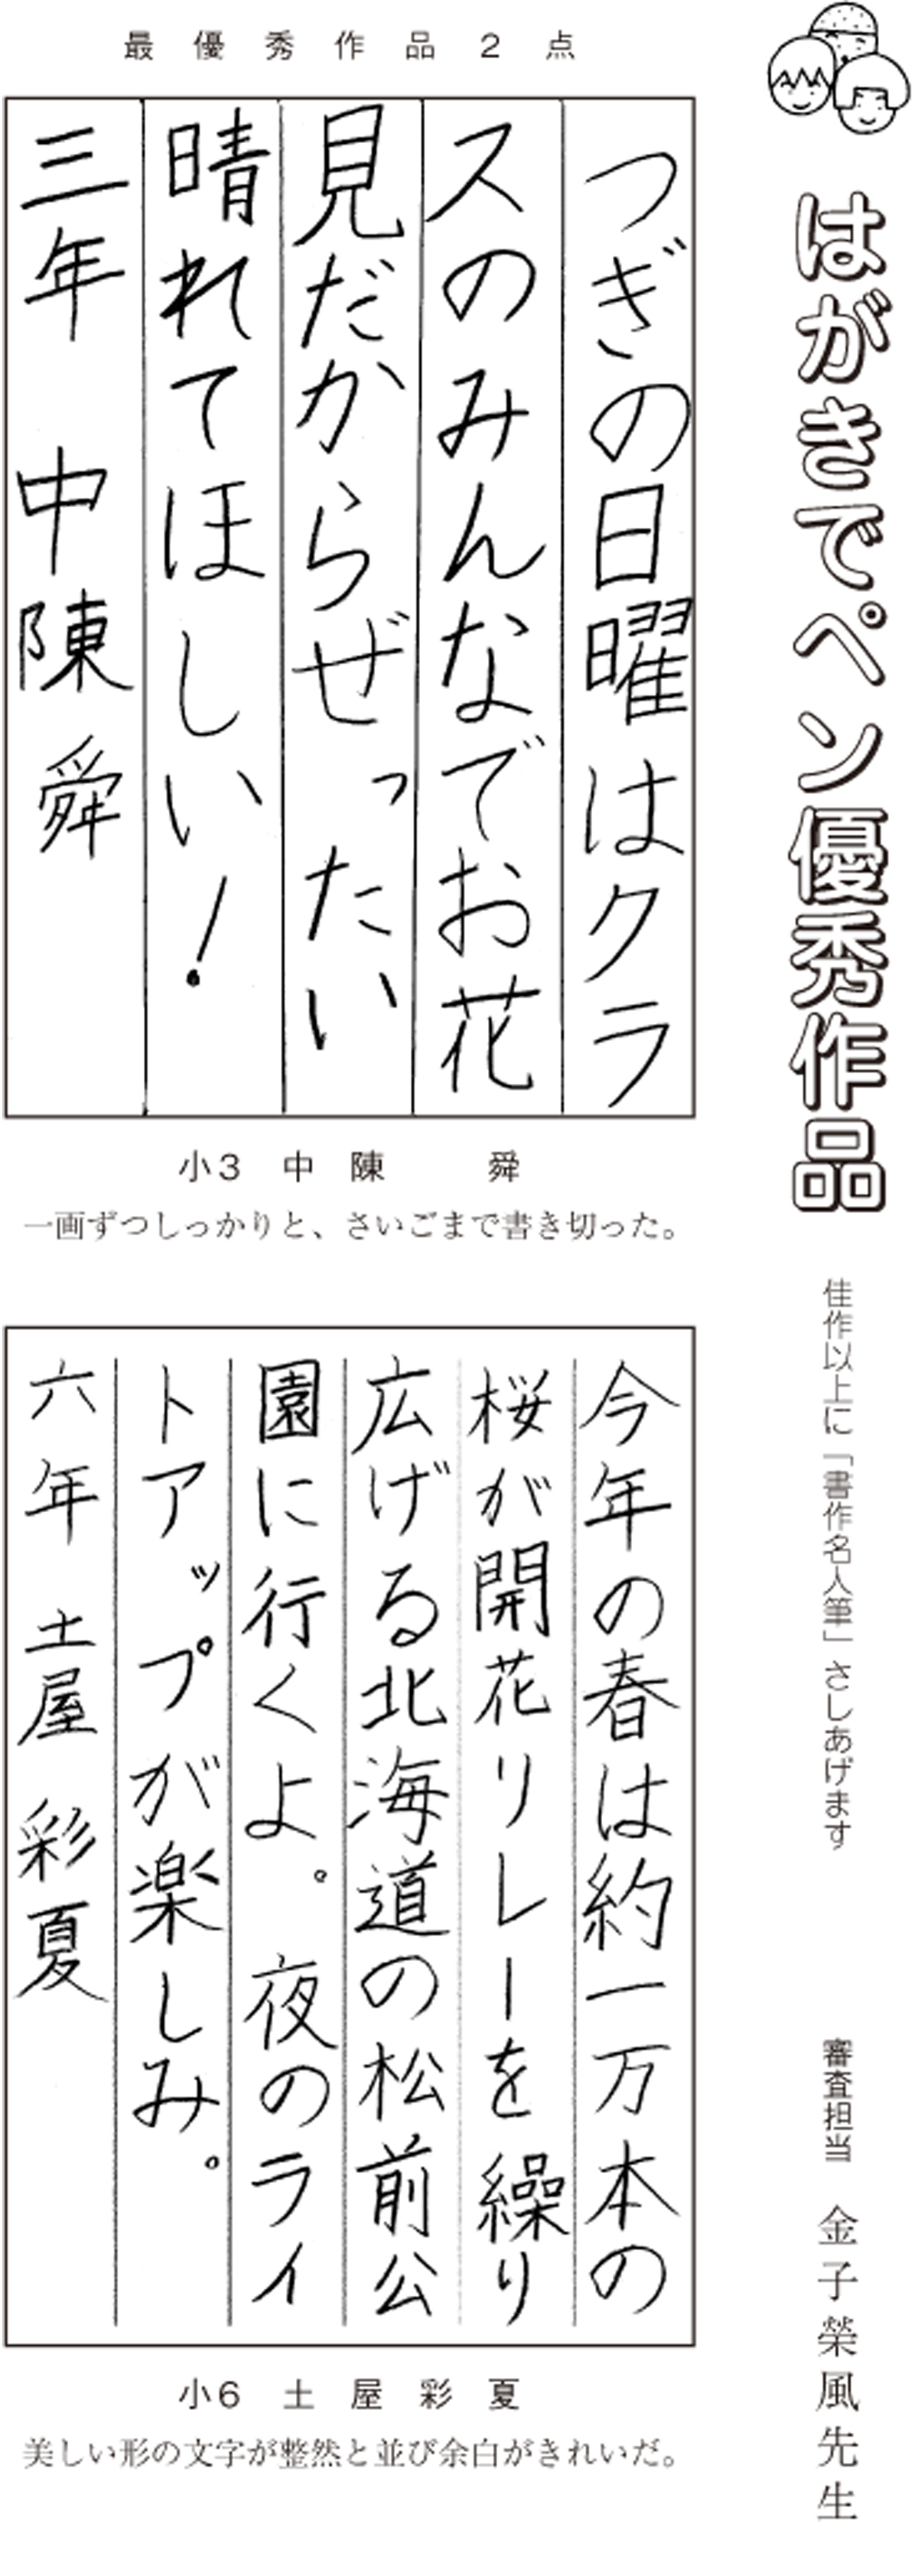 はがきでペン優秀作品
佳作以上に「書作名人筆」さしあげます
審査担当 金子榮風先生
最優秀作品2点
つぎの日曜はクラ
スのみんなでお花
見だからぜったい
晴れてほしい!
三年 中陳舜
小3 中陳 舜
一画ずつしっかりと、さいごまで書き切った。
今年の春は約一万本の
桜が開花リレーを繰り
広げる北海道の松前公
園に行くよ。夜のライ
トアップが楽しみ。
六年 土屋彩夏
小6 土屋彩夏
美しい形の文字が整然と並び余白がきれいだ。